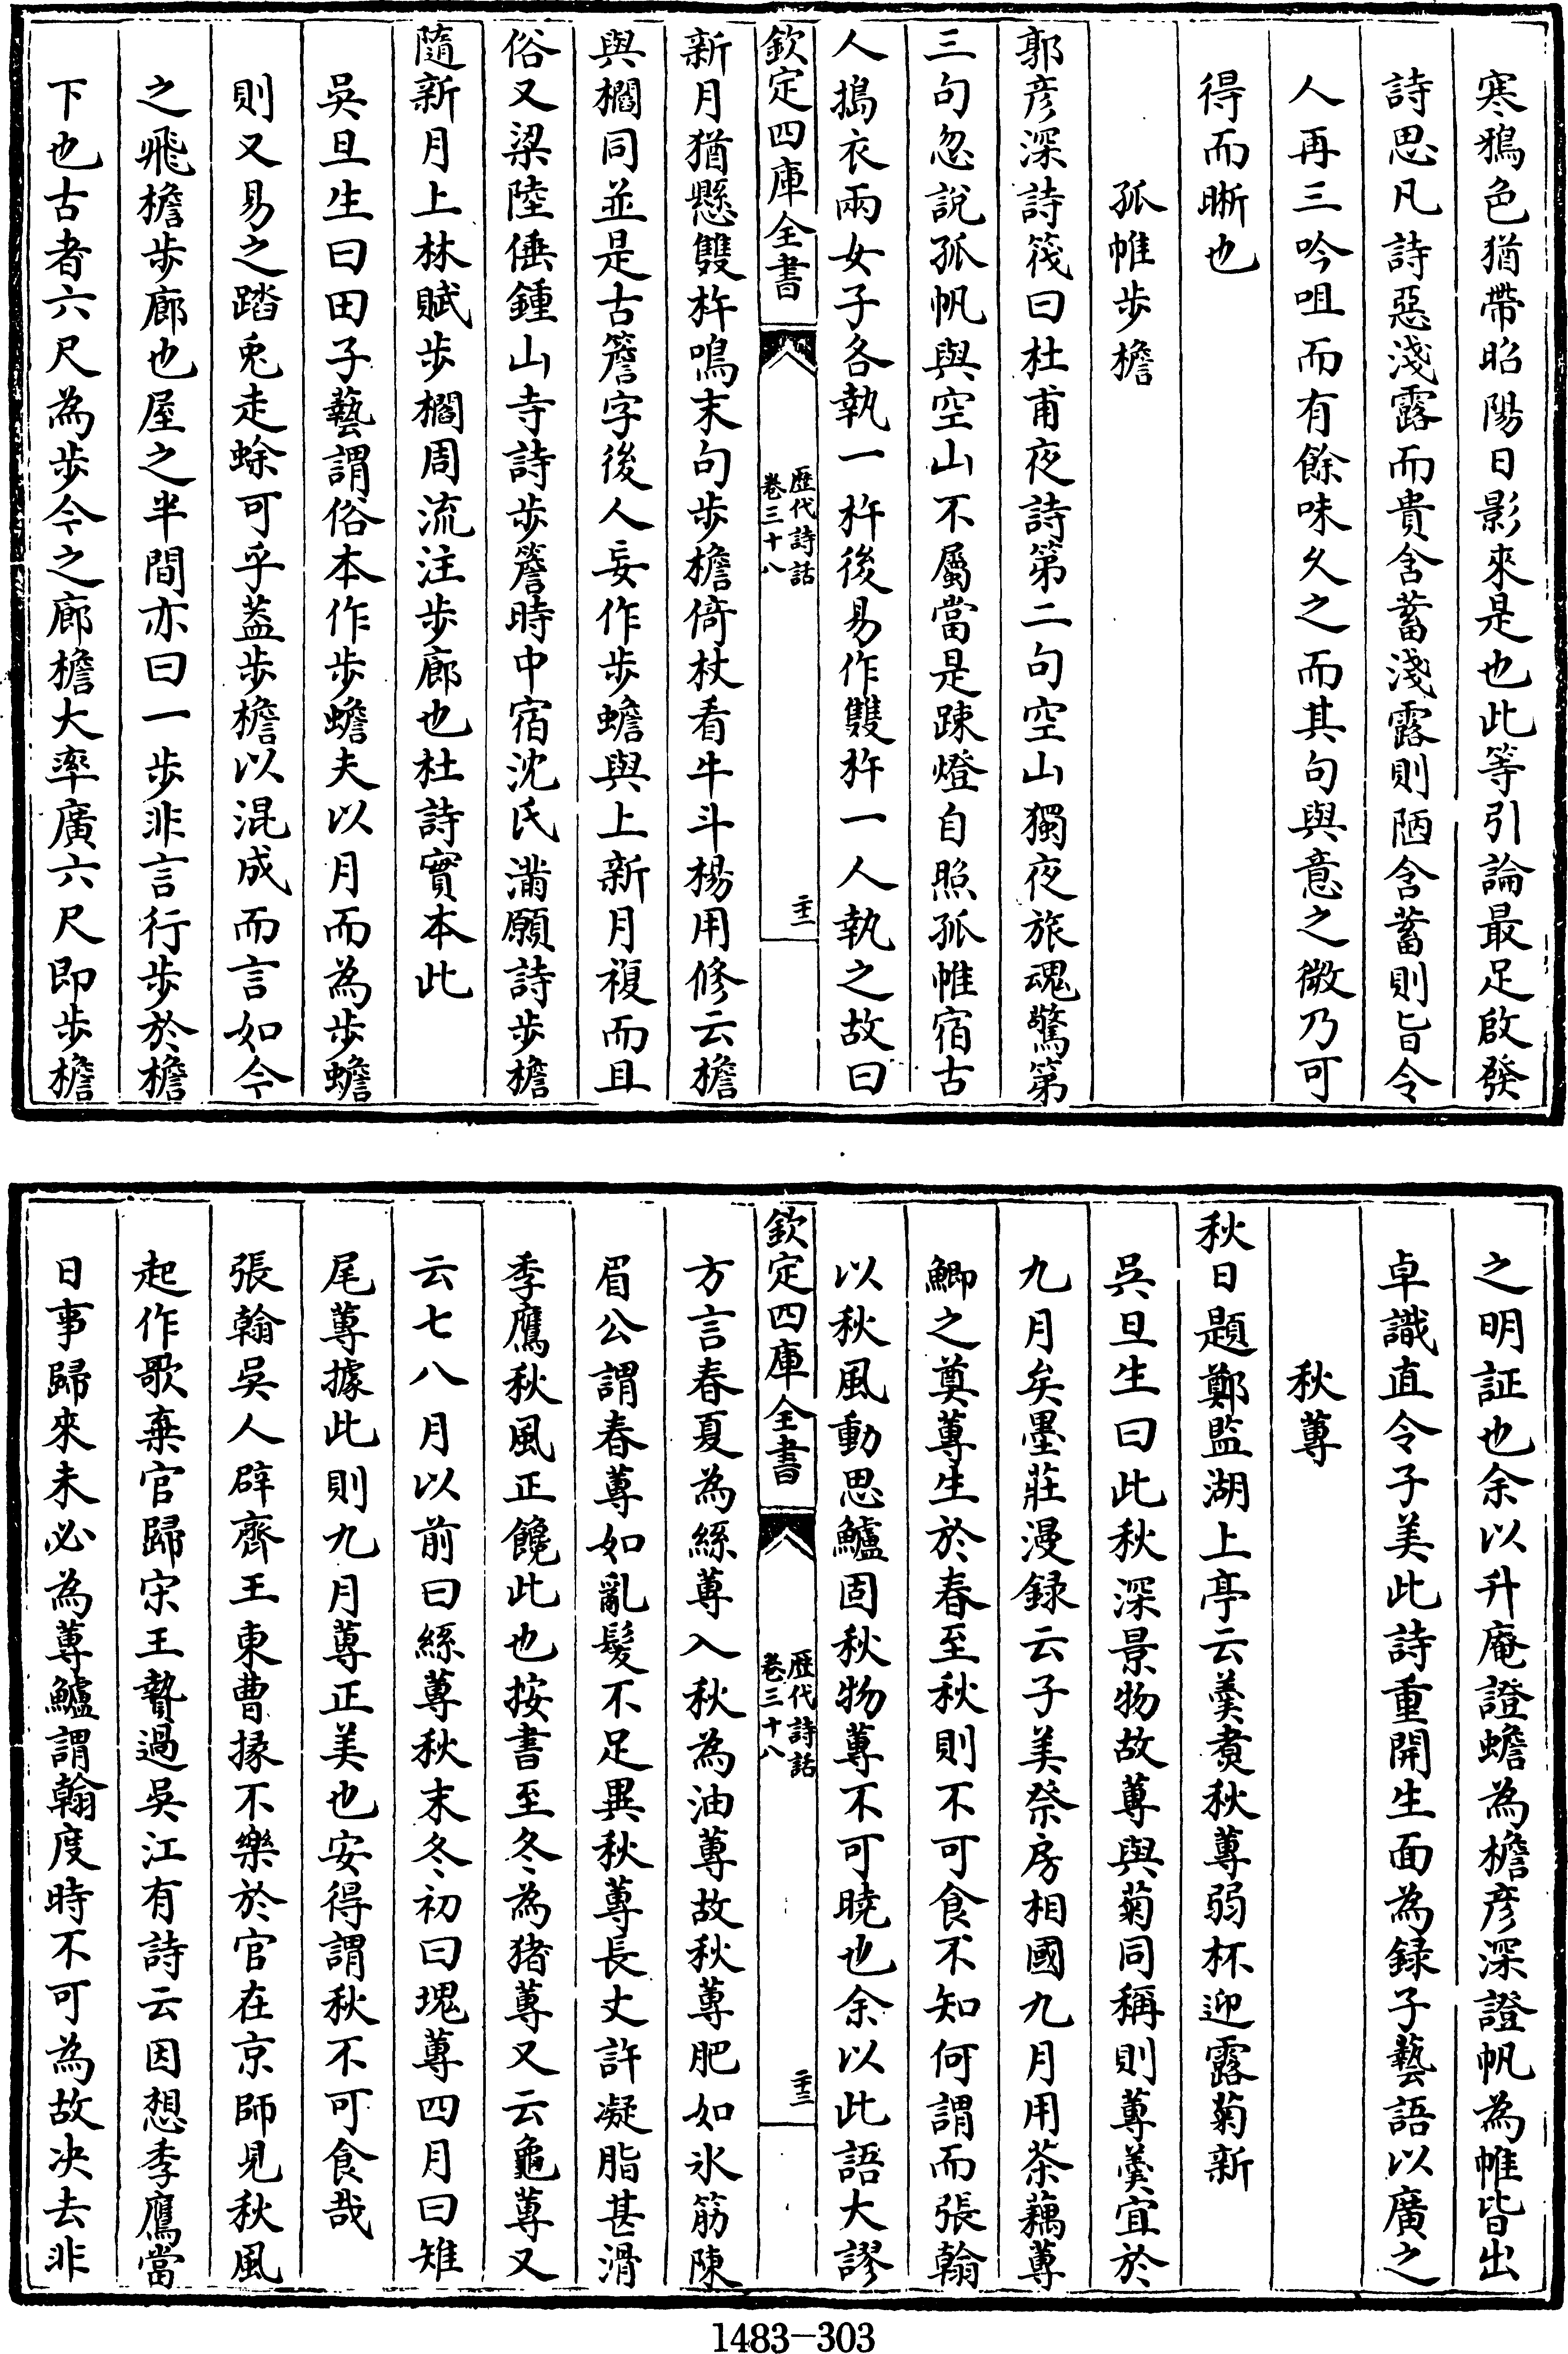 寒鴉色猶帶昭陽日影來是也此等引論最足啟發
詩思凡詩惡淺露而貴含蓄淺露則陋含蓄則旨令
人再三吟咀而有餘味久之而其句與意之微乃可
得而晰也
孤帷步檐
郭彥深詩筏曰杜甫夜詩第二句空山獨夜旅魂驚第
三句忽說孤帆與空山不屬當是疎燈自照孤帷宿古
人搗衣兩女子各執一杵後易作雙杵一人執之故曰
欽定四庫全書
歷代詩話
卷三十八
二十二
新月猶懸雙杵鳴末句步檐倚杖看牛斗楊用修云檐
與櫩同並是古簷字後人妄作步蟾與上新月複而且
俗又梁陸倕鍾山寺詩步簷時中宿沈氏滿願詩步檐
隨新月上林賦步櫩周流注步廊也杜詩實本此
吳旦生曰田子藝謂俗本作步蟾夫以月而為步蟾
則又易之踏兎走蜍可乎蓋步檐以混成而言如今
之飛檐步廊也屋之半間亦曰一步非言行步於檐
下也古者六尺為步今之廊檐大率廣六尺即步檐
之明証也余以升庵證蟾為檐彥深證帆為帷皆出
卓識直令子美此詩重開生面為録子藝語以廣之
秋蓴
秋日題鄭監湖上亭云羹煑秋蓴弱杯迎露菊新
吳旦生曰此秋深景物故蓴與菊同稱則蓴羹宜於
九月矣墨莊漫録云子美祭房相國九月用茶藕蓴
鯽之奠蓴生於春至秋則不可食不知何謂而張翰
以秋風動思鱸固秋物蓴不可曉也余以此語大謬
欽定四庫全書
歷代詩話
卷三十八
二十三
方言春夏為絲蓴入秋為油蓴故秋蓴肥如氷筋陳
眉公謂春蓴如亂髮不足異秋蓴長丈許凝脂甚滑
季鷹秋風正饞此也按書至冬為猪蓴又云龜蓴又
云七八月以前曰絲蓴秋末冬初曰塊蓴四月曰雉
尾蓴據此則九月蓴正美也安得謂秋不可食哉
張翰吳人辟齊王東曹掾不樂於官在京師見秋風
起作歌棄官歸宋王贄過吳江有詩云因想季鷹當
日事歸來未必為蓴鱸謂翰度時不可為故决去非
1483-303